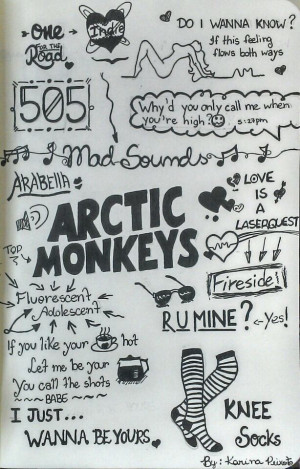 one
FOR THE
Road
Indie
DO I WANNA KNOW?
If this feeling
flows both ways
505
Why'd you only call me when
you're high?
5:27pm
Mad Sounds
ARABELLA
LOVE
IS
A
LASERQUEST
ARCTIC
MONKEYS
TOP
Fireside!
Fluorescent
Adolescent
R U MINE?
Yes!
If you like your hot
Let me be your
You call the shots
~~~ BABE ~~~
I JUST...
WANNA BE YOURS
KNEE
Socks
By: Karina